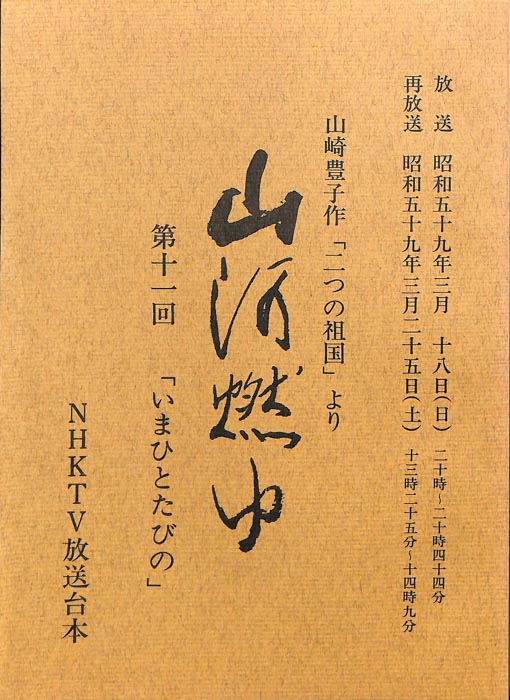 放 送 昭和五十九年三月 十八日(日) 二十時~二十時四十四分
再放送 昭和五十九年三月二十五日(土) 十三時二十五分~十四時九分
山崎豊子作「二つの祖国」より
山河燃ゆ
第十一回 「いまひとたびの」
NHKTV放送台本